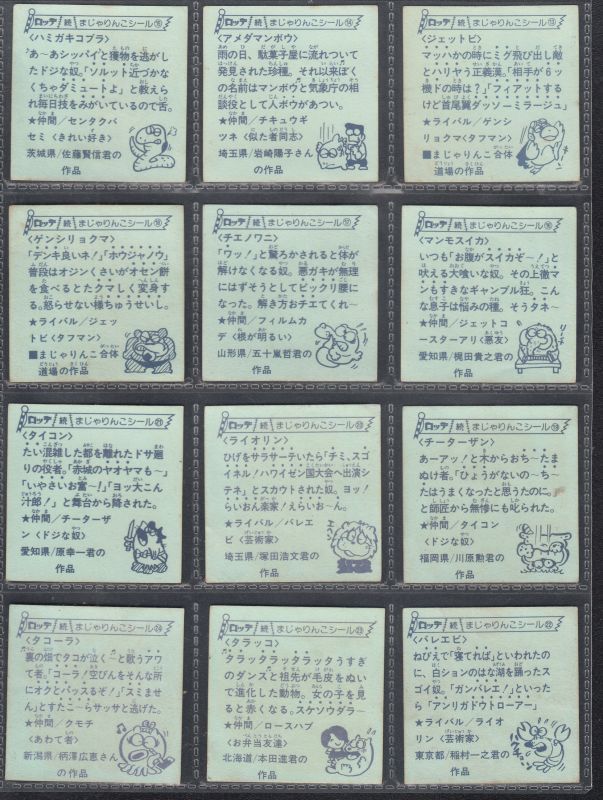 ロッテ 続 まじゃりんこシール⑮
〈ハミガキコブラ〉
'あ〜あシッパイ'と獲物を逃がし
たドジな奴。「ソルット近づかな
くちゃダミュートよ」と教えら
れ毎日技をみがいているので舌。
★仲間／センタクバ
セミ〈きれい好き〉
茨城県／佐藤賢信君の
作品
ロッテ 続 まじゃりんこシール⑭
〈アメダマンボウ〉
雨の日、駄菓子屋に流れついて
発見された珍種。それ以来ぼく
の名前はマンボウと気象庁の相
談役として人ボウがあつい。
★仲間／チキュウギ
ツネ〈似た者同志〉
埼玉県／岩崎陽子さん
の作品
ロッテ 続 まじゃりんこシール⑬
〈ジェットビ〉
マッハかの時にミグ飛び出し敵
とハリヤう正義漢。「相手が6ッ
機ドの時は？」「フィアットする
けど首尾翼ダッソーミラージュ」
★ライバル／ゲンシ
リョクマ〈タフマン〉
■まじゃりんこ合体
道場の作品
ロッテ 続 まじゃりんこシール⑱
〈ゲンシリョクマ〉
「デンキ良いネ！」「ホウジャノウ」
普段はオジンくさいがオセン餅
を食べるとたクマしく変身す
る。怒らせない様ちゅうせいし。
★ライバル／ジェッ
トビ〈タフマン〉
■まじゃりんこ合体
道場の作品
ロッテ 続 まじゃりんこシール⑰
〈チエノワニ〉
「ワッ！」と驚ろかされると体が
解けなくなる奴。悪ガキが無理
にはずそうとしてビックリ腰にな
った。解き方おチエてくれ〜
★仲間／フィルムカ
デ〈根が明るい〉
山形県／五十嵐哲君の
作品
ロッテ 続 まじゃりんこシール⑯
〈マンモスイカ〉
いつも「お腹がスイカぞ〜！」と
吠える大喰いな奴。その上徹マ
ンもすきなギャンブル狂。こん
な息子は悩みの種。そうタネ〜
★仲間／ジェットコ
ースターアリ〈悪友〉
愛知県／梶田貴之君の
作品
ロッテ 続 まじゃりんこシール㉑
〈タイコン〉
たい混雑した都を離れたドサ廻
りの役者。「赤城のヤオヤマも〜」
「いやさいお富〜！」「ヨッ大こん
汁郎！」と舞台から降された。
★仲間／チーターザ
ン〈ドジな奴〉
愛知県／原幸一君の
作品
ロッテ 続 まじゃりんこシール⑳
〈ライオリン〉
ひげをサラサーテいたら「チミ、スゴ
イネル！ハワイゼン国大会へ出演シ
テネ」とスカウトされた奴。ヨッ！
らいおん楽家！えらいお〜ん。
★ライバル／バレエ
ビ〈芸術家〉
埼玉県／塚田浩文君の
作品
ロッテ 続 まじゃりんこシール⑲
〈チーターザン〉
あーアッ！と木からおち〜たま
ぬけ者。「ひょうがないの〜ち〜
たはうまくなったと思うたのに。」
と師匠から無惨にも叱られた。
★仲間／タイコン
〈ドジな奴〉
福岡県／川原勲君の
作品
ロッテ 続 まじゃりんこシール㉔
〈タコーラ〉
裏の畑でタコが泣く〜と歌うアワ
て者。「コーラ！空びんをそんな所
にオクとパッスるぞ！」「スミませ
ん」とすたこ〜らサッサと逃げた。
★仲間／クモチ
〈あわて者〉
新潟県／柄澤広恵さん
の作品
ロッテ 続 まじゃりんこシール㉓
〈タラッコ〉
タラッタラッタラッタうすぎ
のダンスと祖先が毛皮をぬい
で進化した動物。女の子を見
ると赤くなる。スケソウダラ〜
★仲間／ロースハブ
〈お弁当友達〉
北海道／本田進君の
作品
ロッテ 続 まじゃりんこシール㉒
〈バレエビ〉
ねびえで「寝てれば」といわれたの
に、白ションのはな湖を踊ったス
ゴイ奴。「ガンバレエ！」といった
ら「アンリガドウトローアー」
★ライバル／ライオ
リン〈芸術家〉
東京都／稲村一之君の
作品